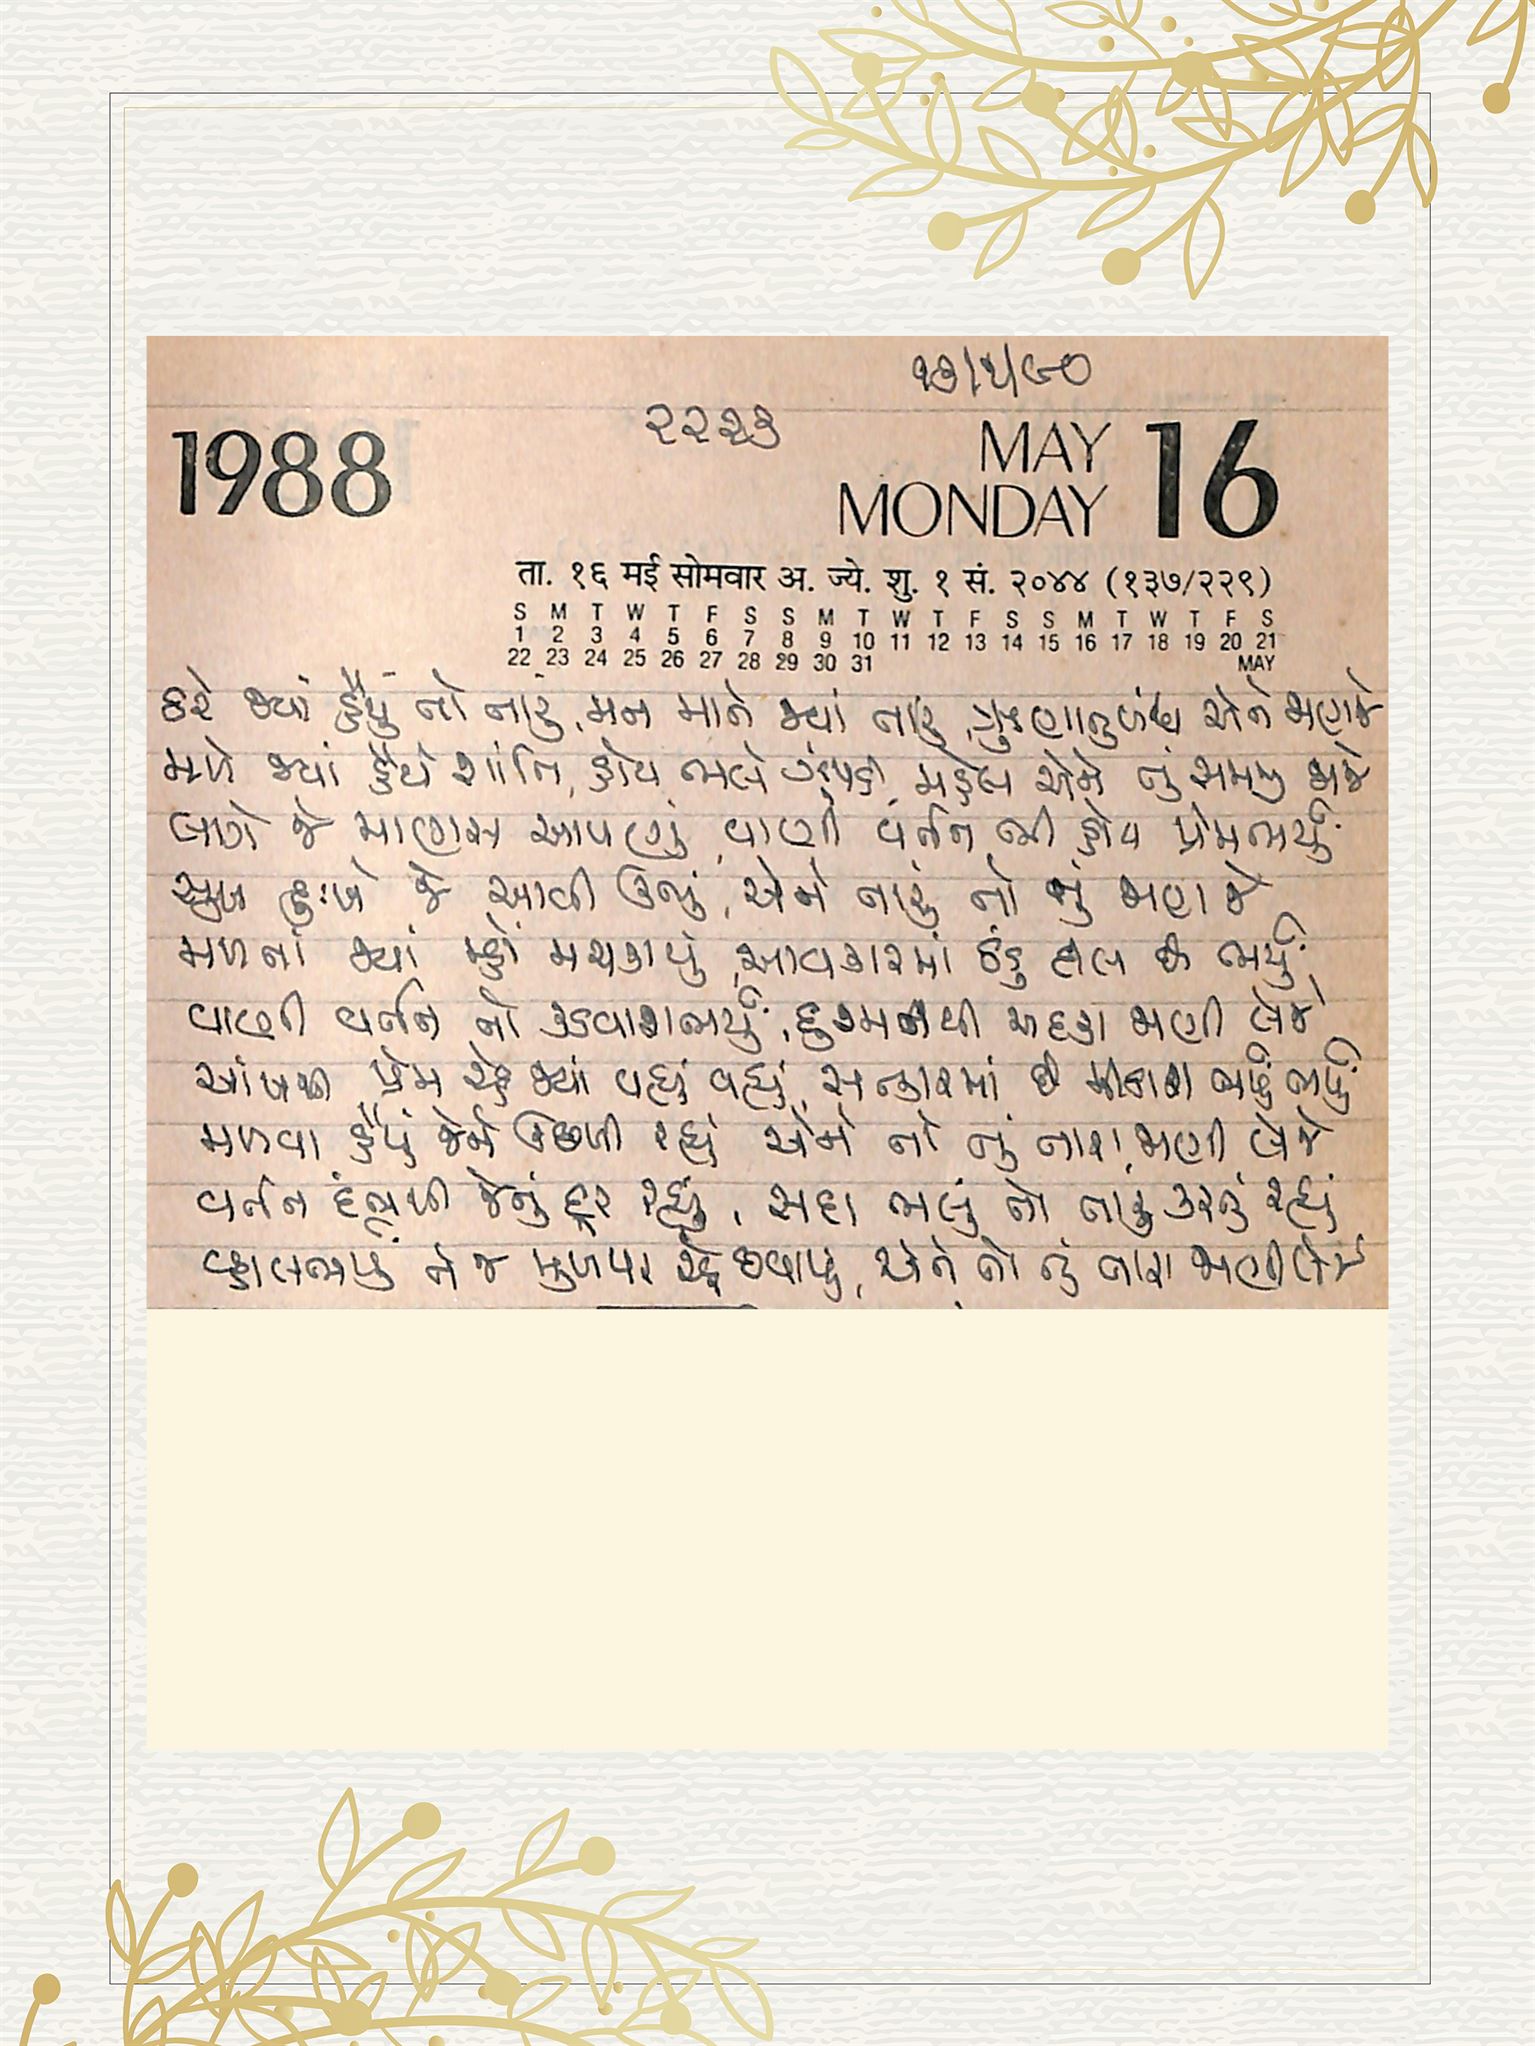 ૧૩/૫/૯૦
૨૨૨૩
1988
MAY 16
MONDAY
ता. १६ मई सोमवार अ. ज्ये. शु. १ सं. २०४४ (१३७/२२९)
S M T W T F S S M T W T F S S M T W T F S
1 2 3 4 5 6 7 8 9 10 11 12 13 14 15 16 17 18 19 20 21
22 23 24 25 26 27 28 29 30 31 MAY
ઠરે જ્યાં હૈયું તો તારું, મન માને જ્યાં તારું, એને ગણજે
મળે જ્યાં હૈયે શાંતિ, હોય ભલે ઝૂંપડી, મહેલ એને તું સમજી જાજે
લાગે જે માણસ આપણું, વાણી વર્તન ભી હોય પ્રેમભર્યું
સુખ દુઃખે જે આવી ઊભું, એને તારું તો તું ગણજે
મળતાં જ્યાં મ્હોં મચકાયું, આવકારમાં ઠંડુ તેલ છે ભર્યું
વાણી વર્તન તો કડવાશભર્યું, દુશ્મનથી અદકા ગણી લેજે
આંખથી પ્રેમ રહે જ્યાં વહ્યું વહ્યું, સત્કારમાં છે મીઠાશ ભર્યું ભર્યું
મળવા હૈયું જેને ઊછળી રહ્યું એને તો તું તારા ગણી લેજે
વર્તન દંભથી જેનું દૂર રહ્યું, સદા ભલું તો તારું કરતું રહ્યું
વ્હાલભર્યું તેજ મુખપર રહે છવાયું, એને તો તું તારા ગણી લેજે